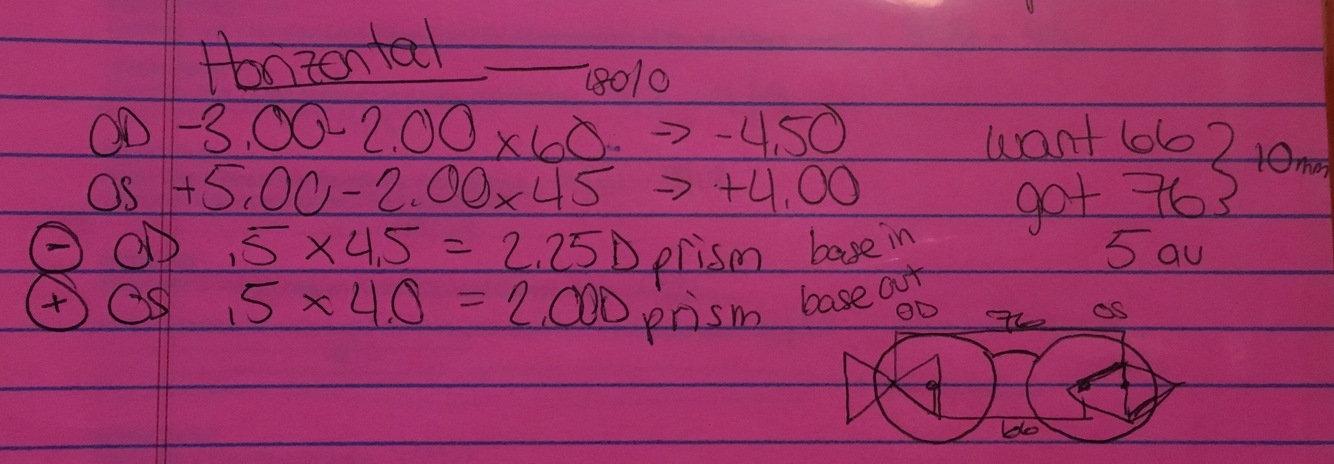 Horizontal — 180/0
OD -3.00-2.00 x60. → -4.50 want 66 } 10mm
OS +5.00-2.00x45 → +4.00 got 76
⊖ OD .5 x 4.5 = 2.25D prism base in 5 au
⊕ OS .5 x 4.0 = 2.00D prism base out
OD 76 OS
66